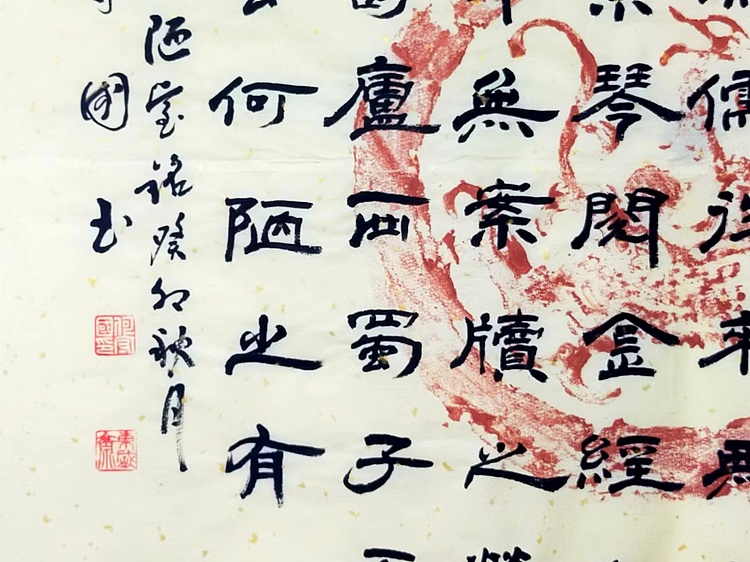 儒往來無
素琴閱金經
無案牘之勞
廬西蜀子
何陋之有
陋室銘癸卯秋月
國书